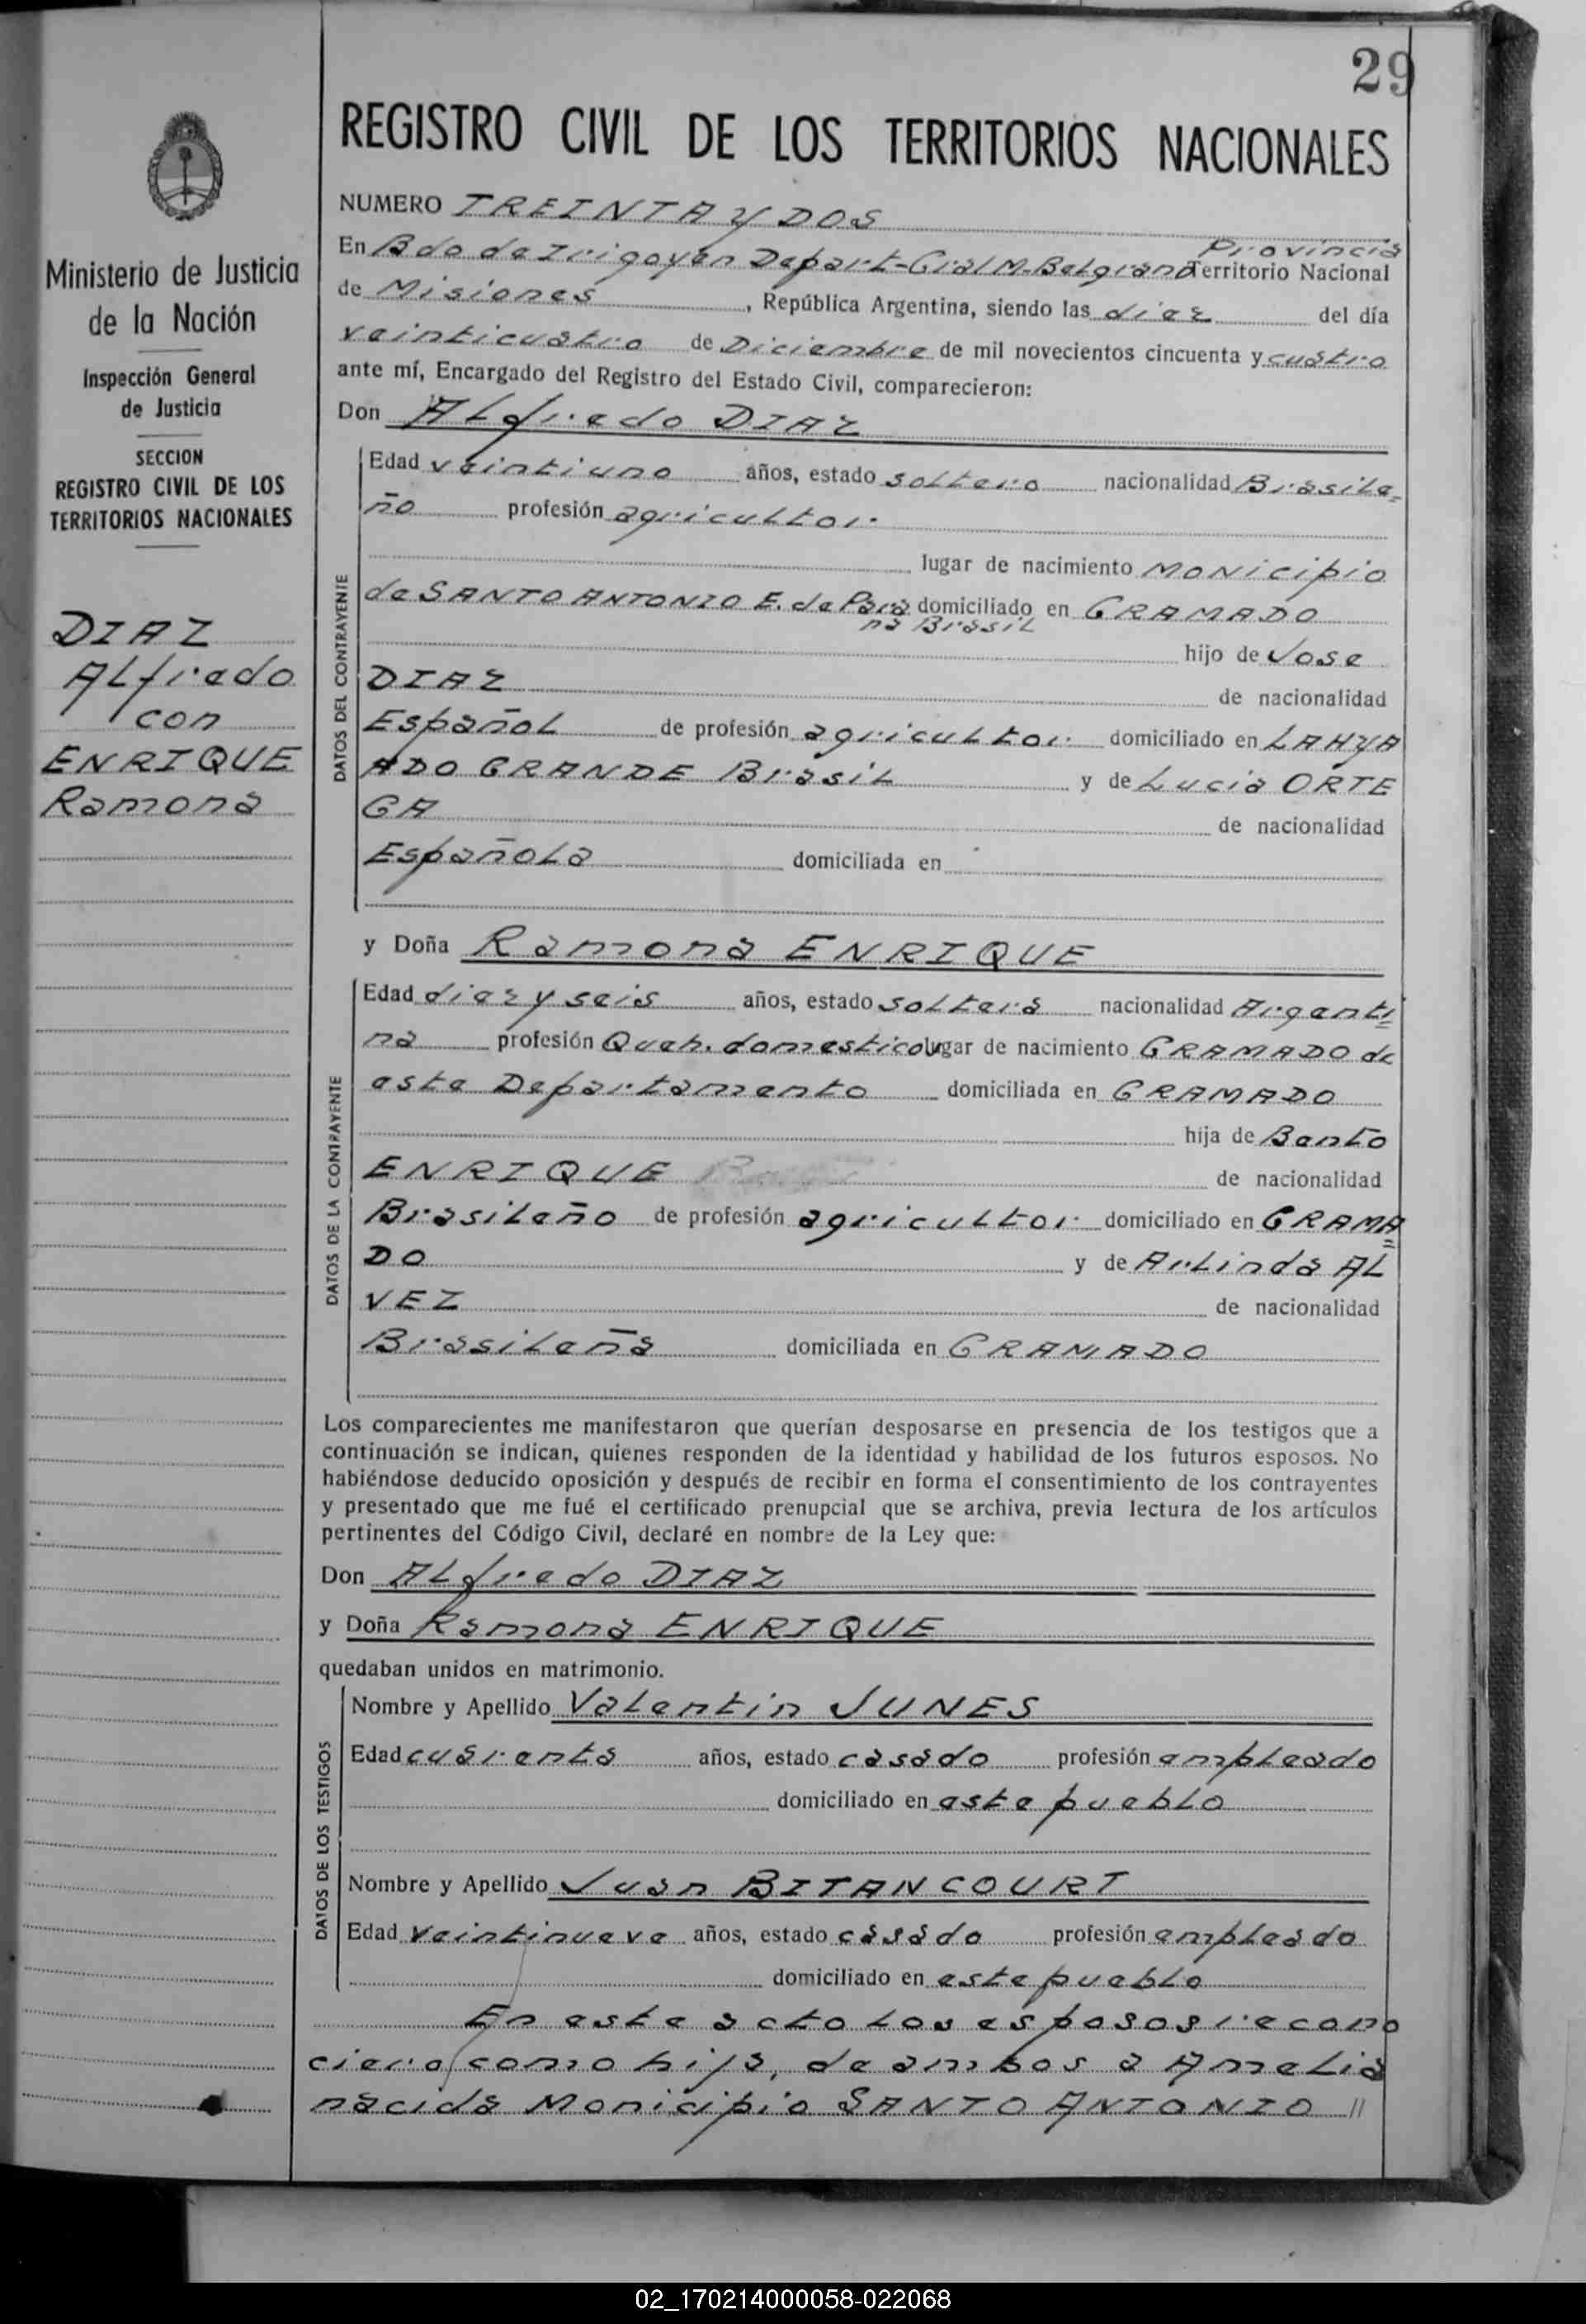 29
REGISTRO CIVIL DE LOS TERRITORIOS NACIONALES
Ministerio de Justicia
de la Nación
Inspección General
de Justicia
SECCION
REGISTRO CIVIL DE LOS
TERRITORIOS NACIONALES
DIAZ
ALfredo
con
ENRIQUE
Ramona
NUMERO TREINTA y DOS
Provincia
En Bdo de Irigoyen Depart-Gral M-Belgrano Territorio Nacional
de Misiones, República Argentina, siendo las diez del día
veinticuatro de Diciembre de mil novecientos cincuenta y cuatro
ante mí, Encargado del Registro del Estado Civil, comparecieron:
Don ALfredo DIAZ
DATOS DEL CONTRAYENTE
Edad veintiuno años, estado soltero nacionalidad Brasile=
ño profesión agricultor
lugar de nacimiento MONicipio
de SANTO ANTONIO E. de Para domiciliado en GRAMADO
na Brasil
hijo de Jose
DIAZ de nacionalidad
Español de profesión agricultor domiciliado en LAHYA
ADO GRANDE Brasil y de Lucia ORTE
GA de nacionalidad
Española domiciliada en
y Doña Ramona ENRIQUE
DATOS DE LA CONTRAYENTE
Edad diez y seis años, estado soltera nacionalidad Argenti=
na profesión Queh. domesticos lugar de nacimiento GRAMADO de
este Departamento domiciliada en GRAMADO
hija de Bento
ENRIQUE de nacionalidad
Brasileño de profesión agricultor domiciliado en GRAMA=
DO y de Arlinda AL
VEZ de nacionalidad
Brasileña domiciliada en GRAMADO
Los comparecientes me manifestaron que querían desposarse en presencia de los testigos que a
continuación se indican, quienes responden de la identidad y habilidad de los futuros esposos. No
habiéndose deducido oposición y después de recibir en forma el consentimiento de los contrayentes
y presentado que me fué el certificado prenupcial que se archiva, previa lectura de los artículos
pertinentes del Código Civil, declaré en nombre de la Ley que:
Don ALfredo DIAZ
y Doña Ramona ENRIQUE
quedaban unidos en matrimonio.
DATOS DE LOS TESTIGOS
Nombre y Apellido Valentin JUNES
Edad cuarenta años, estado casado profesión empleado
domiciliado en este pueblo
Nombre y Apellido Juan BITANCOURT
Edad veintinueve años, estado casado profesión empleado
domiciliado en este pueblo
En este acto los esposos recono
ciero como hija, de ambos a Amelia
nacida Monicipio SANTO ANTONIO //
02_170214000058-022068